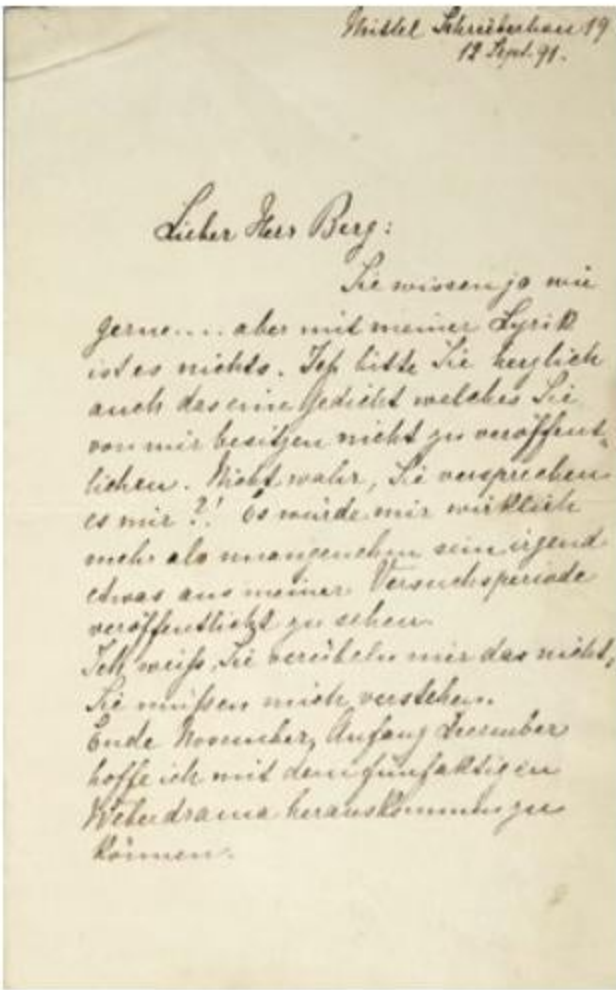 Mittel Schreiberhau 19
12 Sept. 91.
Lieber Herr Berg:
Sie wissen ja wie
gerne.... aber mit meiner Lyrik
ist es nichts. Ich bitte Sie herzlich
auch das eine Gedicht welches Sie
von mir besitzen nicht zu veröffent-
lichen. Nicht wahr, Sie versprechen
es mir?! Es würde mir wirklich
mehr als unangenehm sein irgend
etwas aus meiner Versuchsperiode
veröffentlicht zu sehen.
Ich weiß, Sie verübeln mir das nicht,
Sie müßen mich verstehen.
Ende November, Anfang December
hoffe ich mit dem fünfaktigen
Weberdrama herauskommen zu
können.